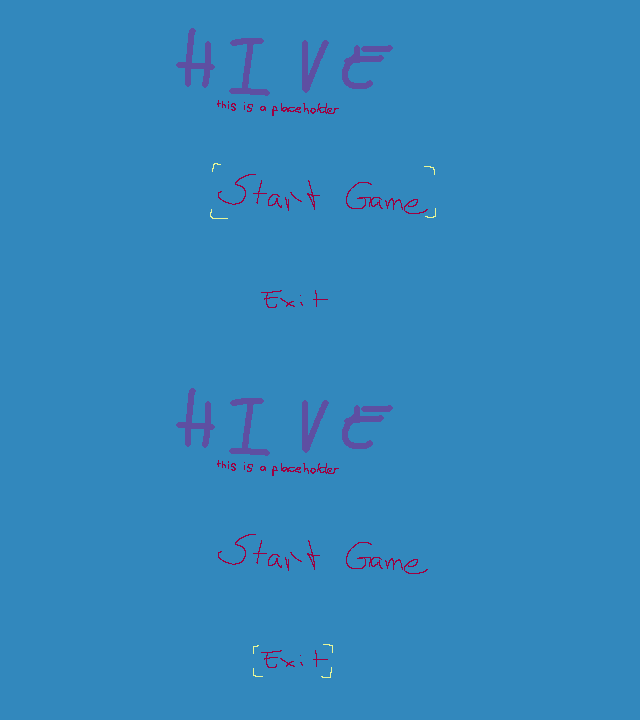 HIVE
this is a placeholder
Start Game
Exit
HIVE
this is a placeholder
Start Game
Exit